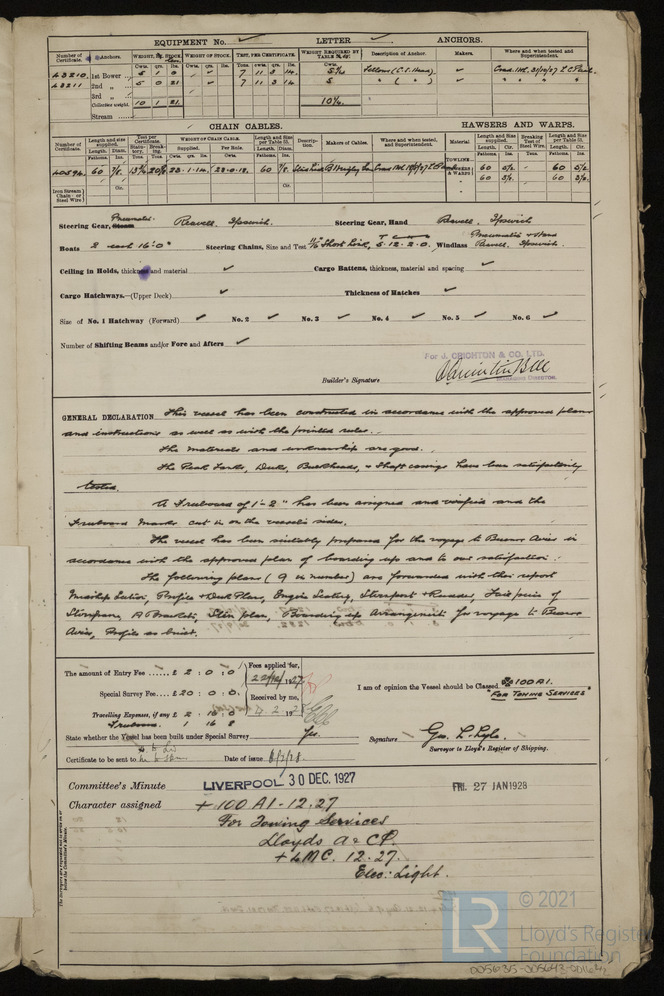 EQUIPMENT No. LETTER ANCHORS.
Number of Certificate. Anchors. WEIGHT, Ex. STOCK WEIGHT OF STOCK. TEST, PER CERTIFICATE. WEIGHT REQUIRED BY TABLE Description of Anchor. Makers. Where and when tested and Superintendent.
Cwts. qrs. lbs. Cwts. qrs. lbs. Tons. cwts. qrs. lbs. Cwts.
43210 1st Bower 5 1 0 7 11 3 14
43211 2nd " 5 0 21 7 11 3 14 5
3rd "
Collective weight. 10 1 21 10¼
Stream
CHAIN CABLES. HAWSERS AND WARPS.
Number of Certificate. Length and size supplied. Test per Certificate WEIGHT OF CHAIN CABLE. Length and Size per Table 53. Description. Makers of Cables. Where and when tested, and Superintendent. Material Length and Size supplied. Breaking Test of Steel Wire. Length and Size per Table 53.
Statutory. Breaking. Supplied. Per Rule.
Fathoms. Diam. Tons. Tons. Cwts. qrs. lbs. Cwts. qrs. lbs. Length. Diam. Fathoms. Cir. Tons. Fathoms. Ins.
40594 60 7/8 60 7/8 60 5½ 60 5½
60 3½ 60 3½
TOWLINE
Iron Stream Chain or Steel Wire
Steering Gear, Steam Pneumatic Reavell, Ipswich. Steering Gear, Hand Reavell, Ipswich
Boats 2 each 16'0" Steering Chains, Size and Test Short Link, 5.12.2.0. Windlass Pneumatic & Hand Reavell Ipswich.
Ceiling in Holds, thickness and material Cargo Battens, thickness, material and spacing
Cargo Hatchways.—(Upper Deck) Thickness of Hatches
Size of No. 1 Hatchway (Forward) No. 2 No. 3 No. 4 No. 5 No. 6
Number of Shifting Beams and/or Fore and Afters
For J. CRICHTON & CO. LTD.
MANAGING DIRECTOR.
Builder's Signature
GENERAL DECLARATION This vessel has been constructed in accordance with the approved plans
and instructions as well as with the printed rules.
The materials and workmanship are good.
The Peak Tanks, Decks, Bulkheads, & Shaft casings have been satisfactorily
tested.
A Freeboard of 1'-2" has been assigned and verified and the
Freeboard Marks cut in on the vessel's sides.
The vessel has been suitably prepared for the voyage to Buenos Aires in
accordance with the approved plan of boarding up and to our satisfaction.
The following plans (9 in number) are forwarded with this report
Midship Section, Profile & Deck Plans, Engine Seating, Sternpost & Rudder,
Sternframe, A Brackets, Boarding up Arrangement for voyage to Buenos
Aires, Profile as built.
The amount of Entry Fee £ 2 : 0 : 0 Fees applied for,
22/12/1927
Special Survey Fee £20 : 0 : 0 Received by me,
Travelling Expenses, if any £ 2 16 0 2 1928
Freeboard 1 16 8
I am of opinion the Vessel should be Classed 100 A1.
"FOR TOWING SERVICES"
State whether the Vessel has been built under Special Survey Yes
Signature Geo. L. Lyle.
Surveyor to Lloyd's Register of Shipping.
Certificate to be sent to Date of issue
Committee's Minute LIVERPOOL 30 DEC. 1927 FRI. 27 JAN 1928
Character assigned + 100 A1 - 12.27
For Towing Services
Lloyds A & CP.
+ LMC. 12.27.
Elec: Light.
LR © 2021
Lloyd's Register
Foundation